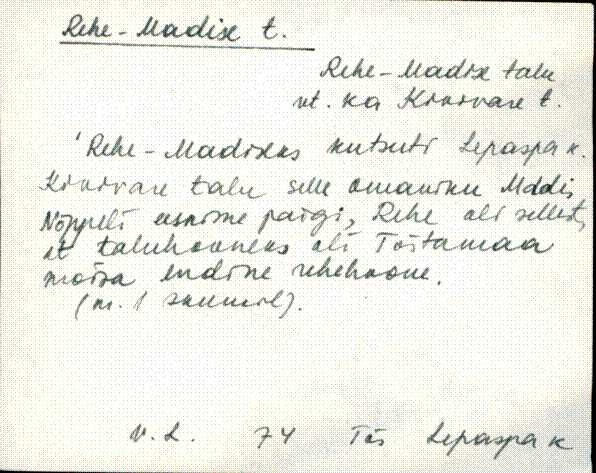 Rehe-Madise t.
Rehe-Madise talu
vt. ka Kivivare t.
'Rehe-Madiseks kutsuti Lepaspa k.
Kivivare talu selle omaniku Madis
Nõppeli eesnime paigi, Rehe oli sellest,
et taluhooneks oli Tõstamaa
mõisa endine rehehoone.
(m. 1
V.L. 74 Tõs Lepaspa k